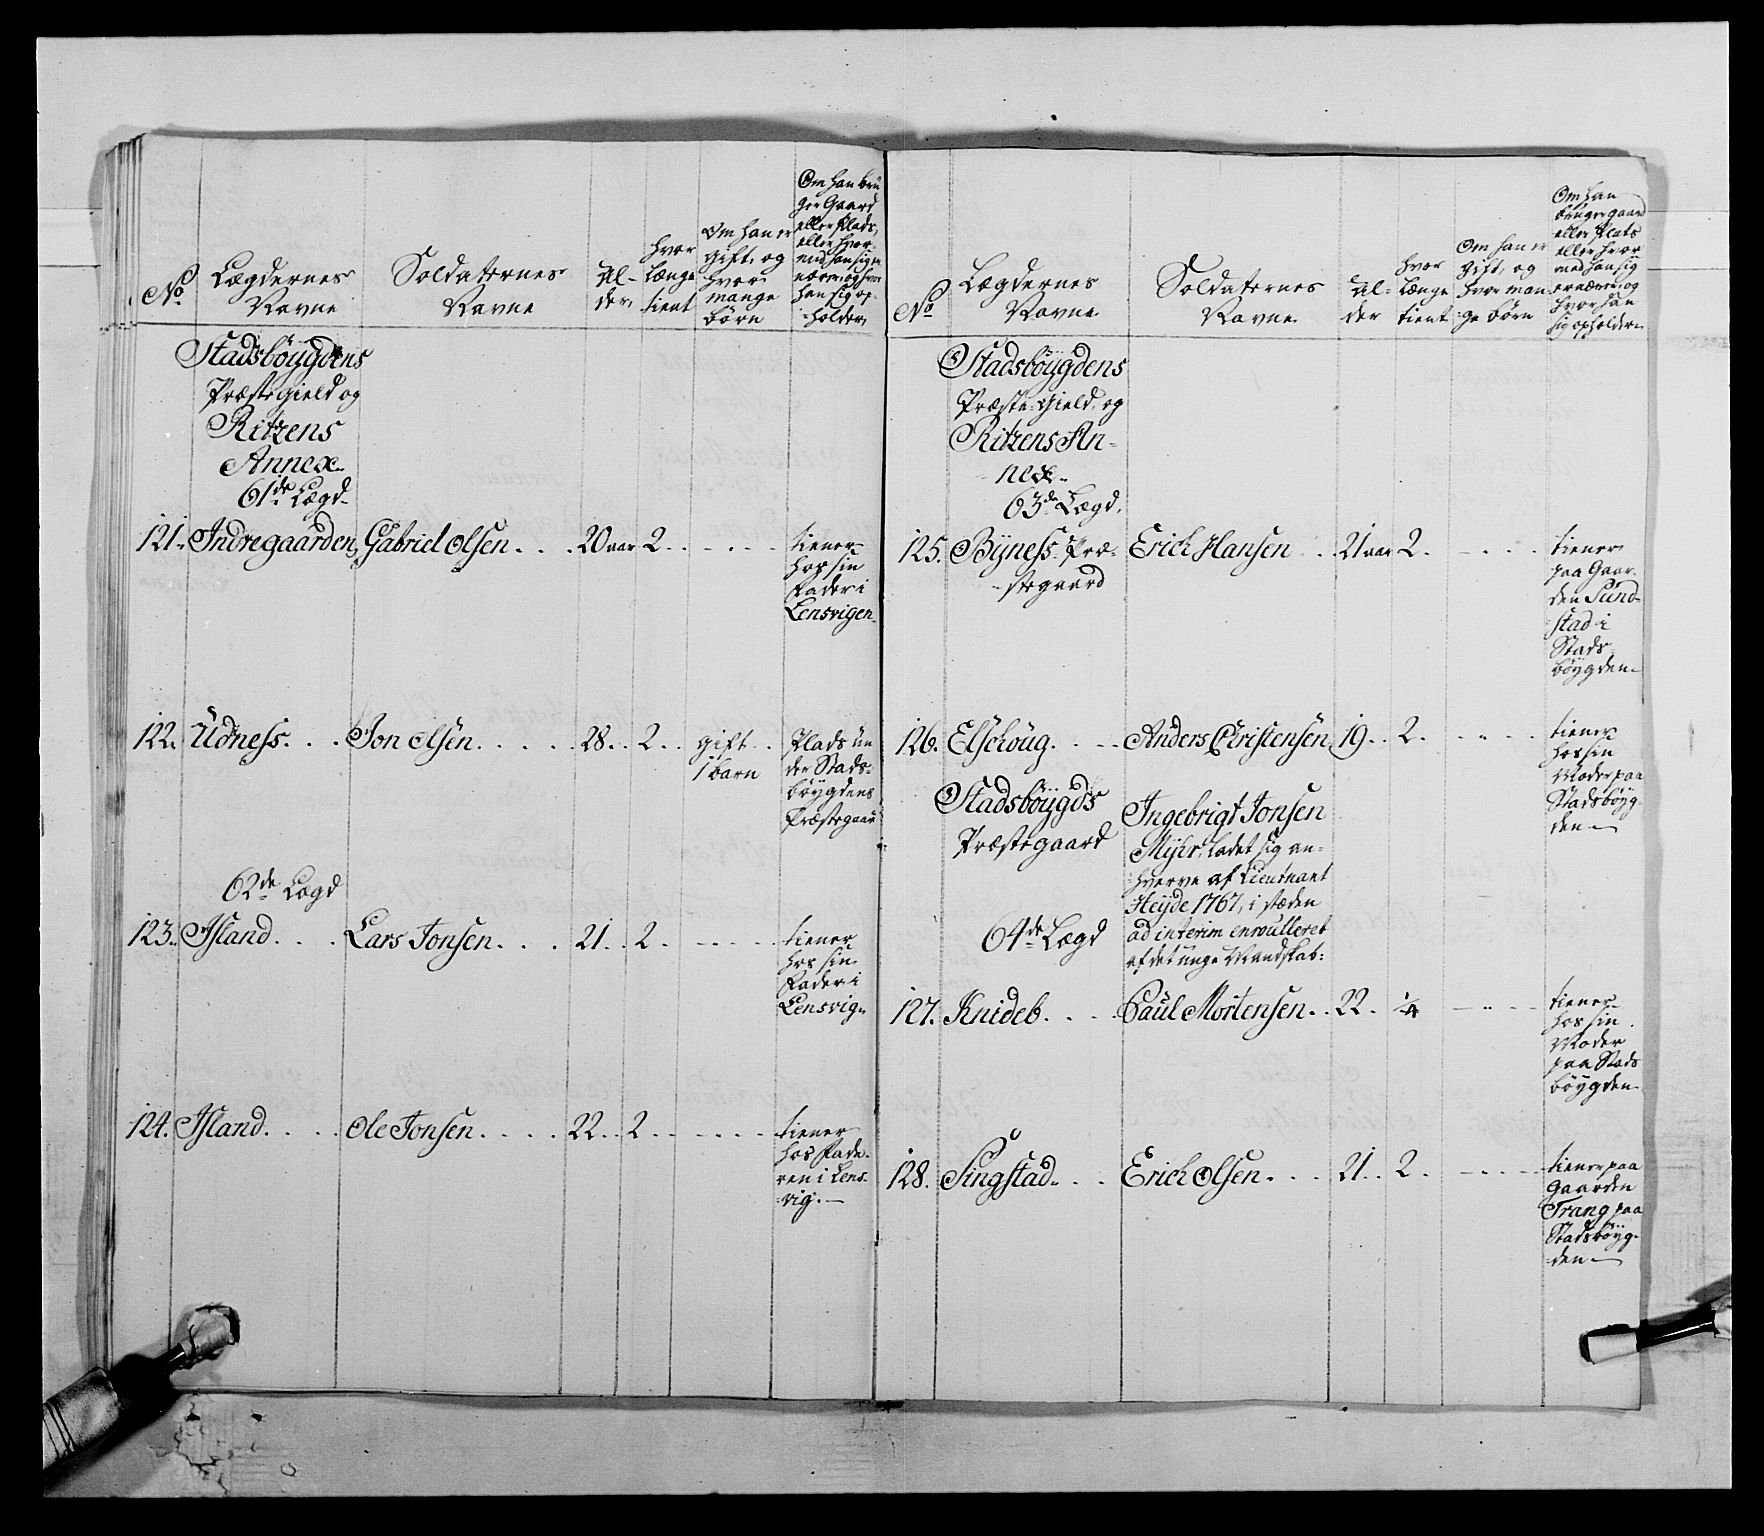 No
Lægdernes
Navne
Soldaternes
Navne
Al-
der,
hvor
længe
tient
Om han er
gift, og
hvor
mange
børn
Om han bru
ger Gaard
eller Plads,
eller hvor-
med han sig er
nærer, og hvor
han sig op-
holder,
Stadsbøygdens
Præste gield og
Ritzens
Annex.
61de Lægd.
121. Indregaarden, Gabriel Olsen . . . 20 aar 2 . . - . . .
tiener
hos sin
Fader i
Lensvigen.
122. Udness. . . . Jon Olsen . . . . . 28 . . 2 . . gift . .
1 barn
Plads un
der Stads-
bøygdens
Præstegaar
62de Lægd
123. Island. . . . Lars Jonsen. . . . 21 . . 2 . . - . . . .
tiener
hos sin
Fader i
Lensvig.
124. Island. . . . . Ole Jonsen . . . . . 22 . . 2 . . - . . . .
tiener
hos Fade-
ren i Lens-
vig. —
No
Lægdernes
Navne
Soldaternes
Navne
Al-
der
hvor
længe
tient
Om han er
gift, og
hvor man-
ge børn
Om han
bruger gaard
eller Plats
eller hvor
med han sig
ernærer, og
hvor han
sig opholder
Stadsbøygdens
Præste-Gield, og
Ritzens An-
nex.
63de Lægd.
125. Bÿness Præ-
stegaard
Erich Hansen . . 21 aar 2 . - . . .
tiener
paa Gaar-
den Sund-
stad i
Stads-
bøygden
126. Elschoug. . . . Anders Christensen 19 . . 2 . - . . .
tiener
hos sin
Moder paa
Stadsbøyg-
den —
Stadsbøygds
Præstegaard
Ingebrigt Jonsen
Mÿhr, ladet sig an-
hverve af Lieutnant
Heÿde 1767, i stæden
ad interim enroulleret
af det unge Mandskab:
64de Lægd
127. Knideb. . . . . Paul Mortensen . . 22 . 1/4 - . . .
tiener
hos sin
Moder
paa Stads
bøygden
128. Singstad. . . . Erich Olsen . . . 21 . . 2 . - . . . .
tiener paa
Gaarden
Trang paa
Stadsbøyg-
den —